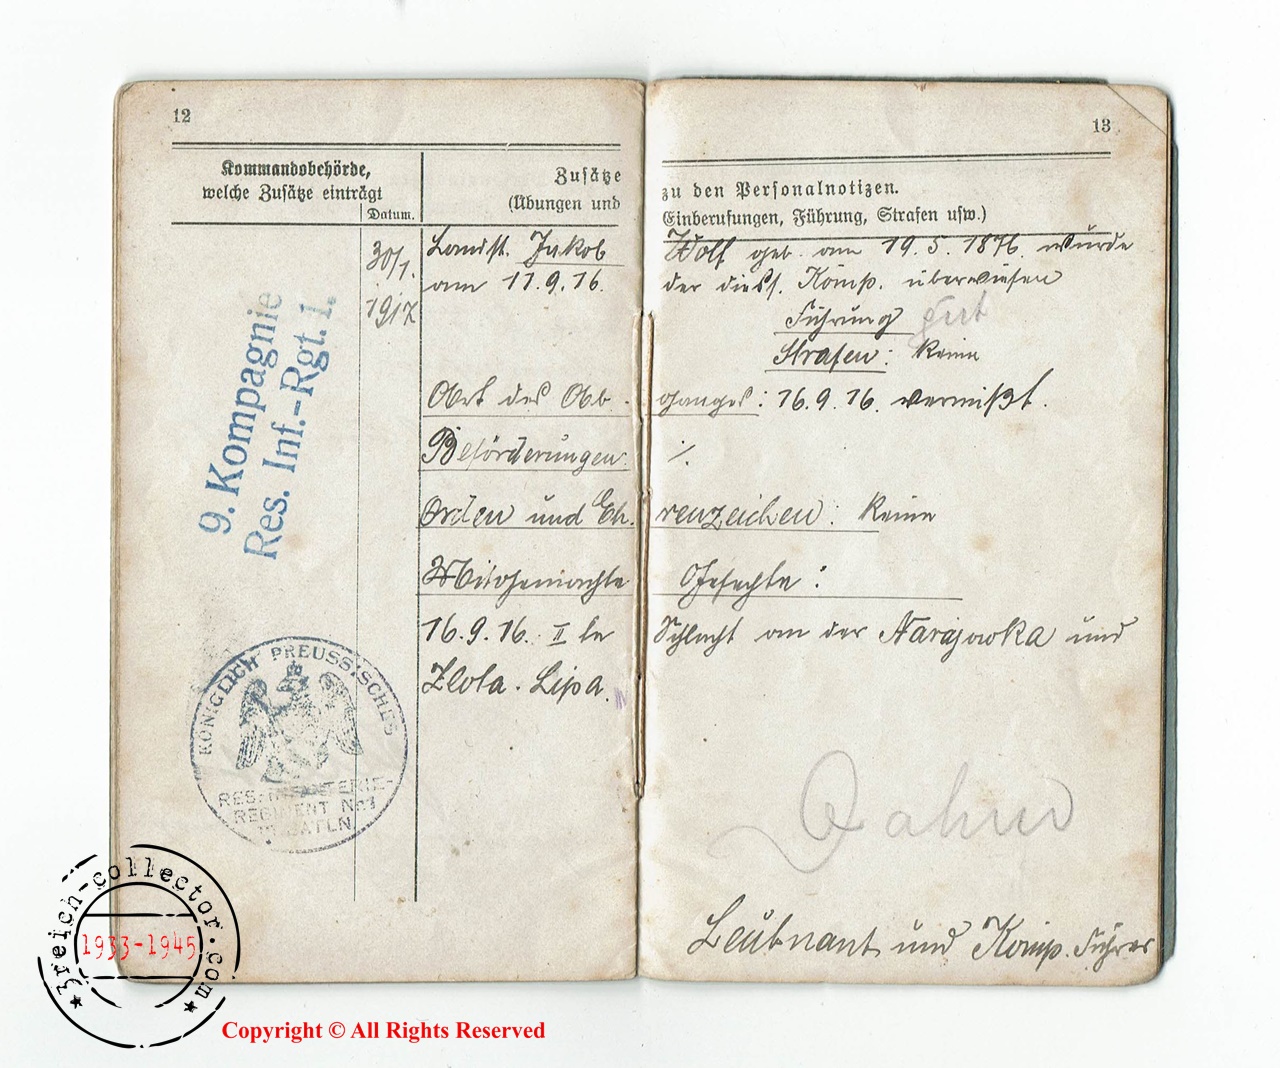 12
13
Kommandobehörde,
welche Zusätze einträgt
Datum.
Zusätze zu den Personalnotizen.
(Übungen und Einberufungen, Führung, Strafen usw.)
30/1.
1917
Landst. Jakob Wolf geb. am 19.5.1876. wurde
am 11.9.16. der diess. Komp. überwiesen
Führung gut
Strafen: keine
Art des Abganges: 16.9.16. vermißt.
Beförderungen: /.
Orden und Ehrenzeichen: keine
Mitgemachte Gefechte:
16.9.16. II te Schlacht an der Narajowka und
Zlota. Lipa.
9. Kompagnie
Res. Inf.-Rgt. 1.
KÖNIGLICH PREUSSISCHES
RES. INFANTERIE-
REGIMENT No 1
BATLN.
Leutnant und Komp. Führer
3reich-collector.com
1933-1945
Copyright © All Rights Reserved